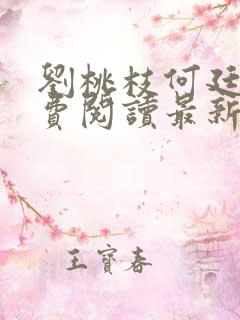 劉桃枝何廷
費閱讀最新
王寶春